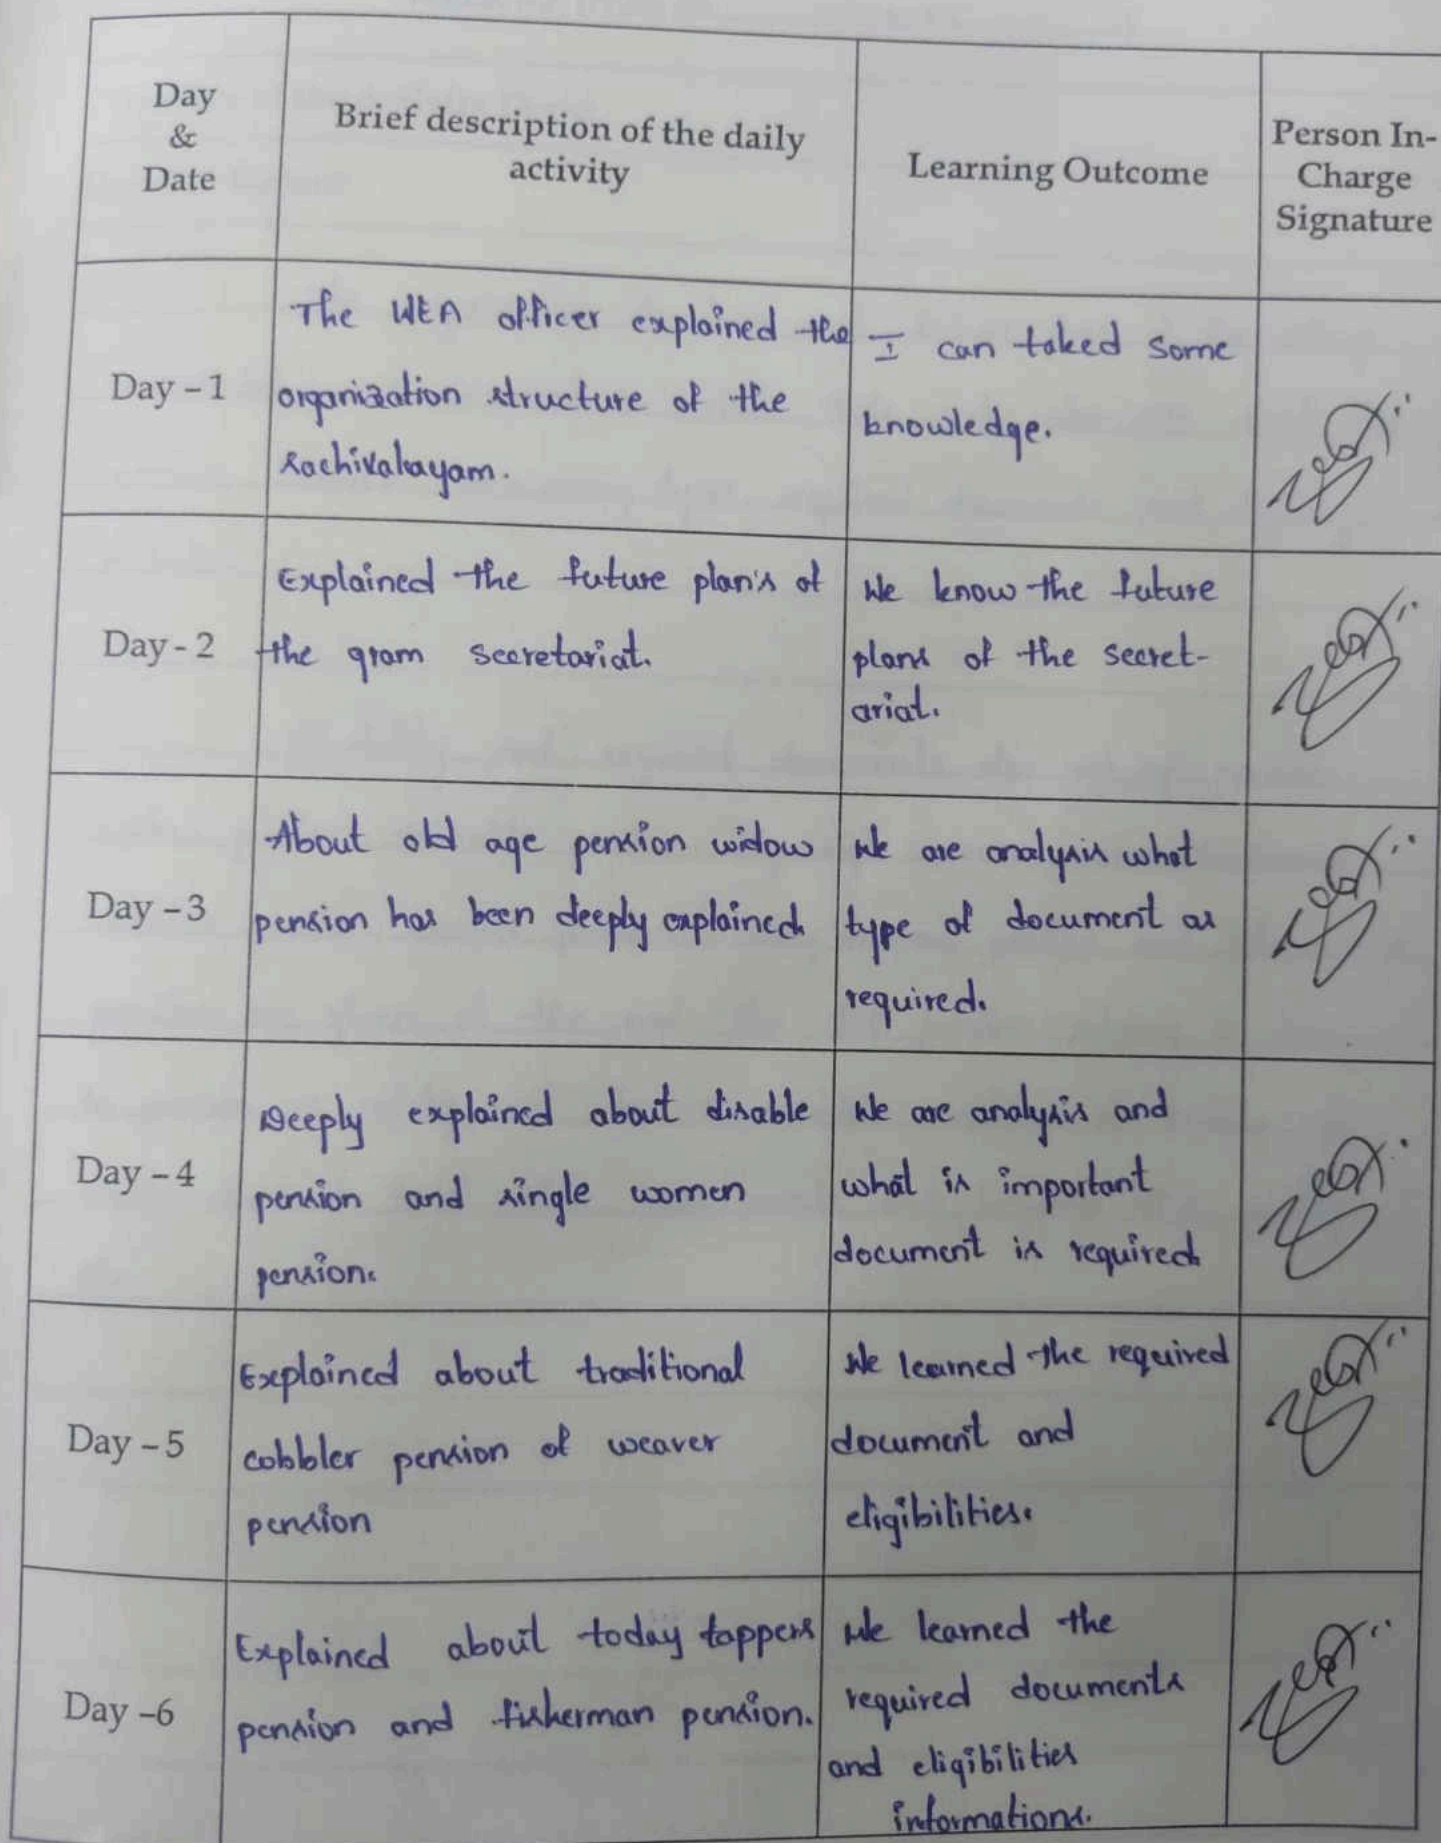 Day
&
Date
Brief description of the daily
activity
Learning Outcome
Person In-
Charge
Signature
Day - 1
The WEA officer explained the
organization structure of the
sachivalayam.
I can taked some
knowledge.
Day - 2
Explained the future plan's of
the gram secretariat.
We know the future
plans of the secret-
ariat.
Day - 3
About old age pension widow
pension has been deeply explained
We are analysis what
type of document as
required.
Day - 4
Deeply explained about disable
pension and single women
pension.
We are analysis and
what is important
document is required
Day - 5
Explained about traditional
cobbler pension of weaver
pension
We learned the required
document and
eligibilities.
Day -6
Explained about today tappers
pension and fisherman pension.
We learned the
required documents
and eligibilities
informations.